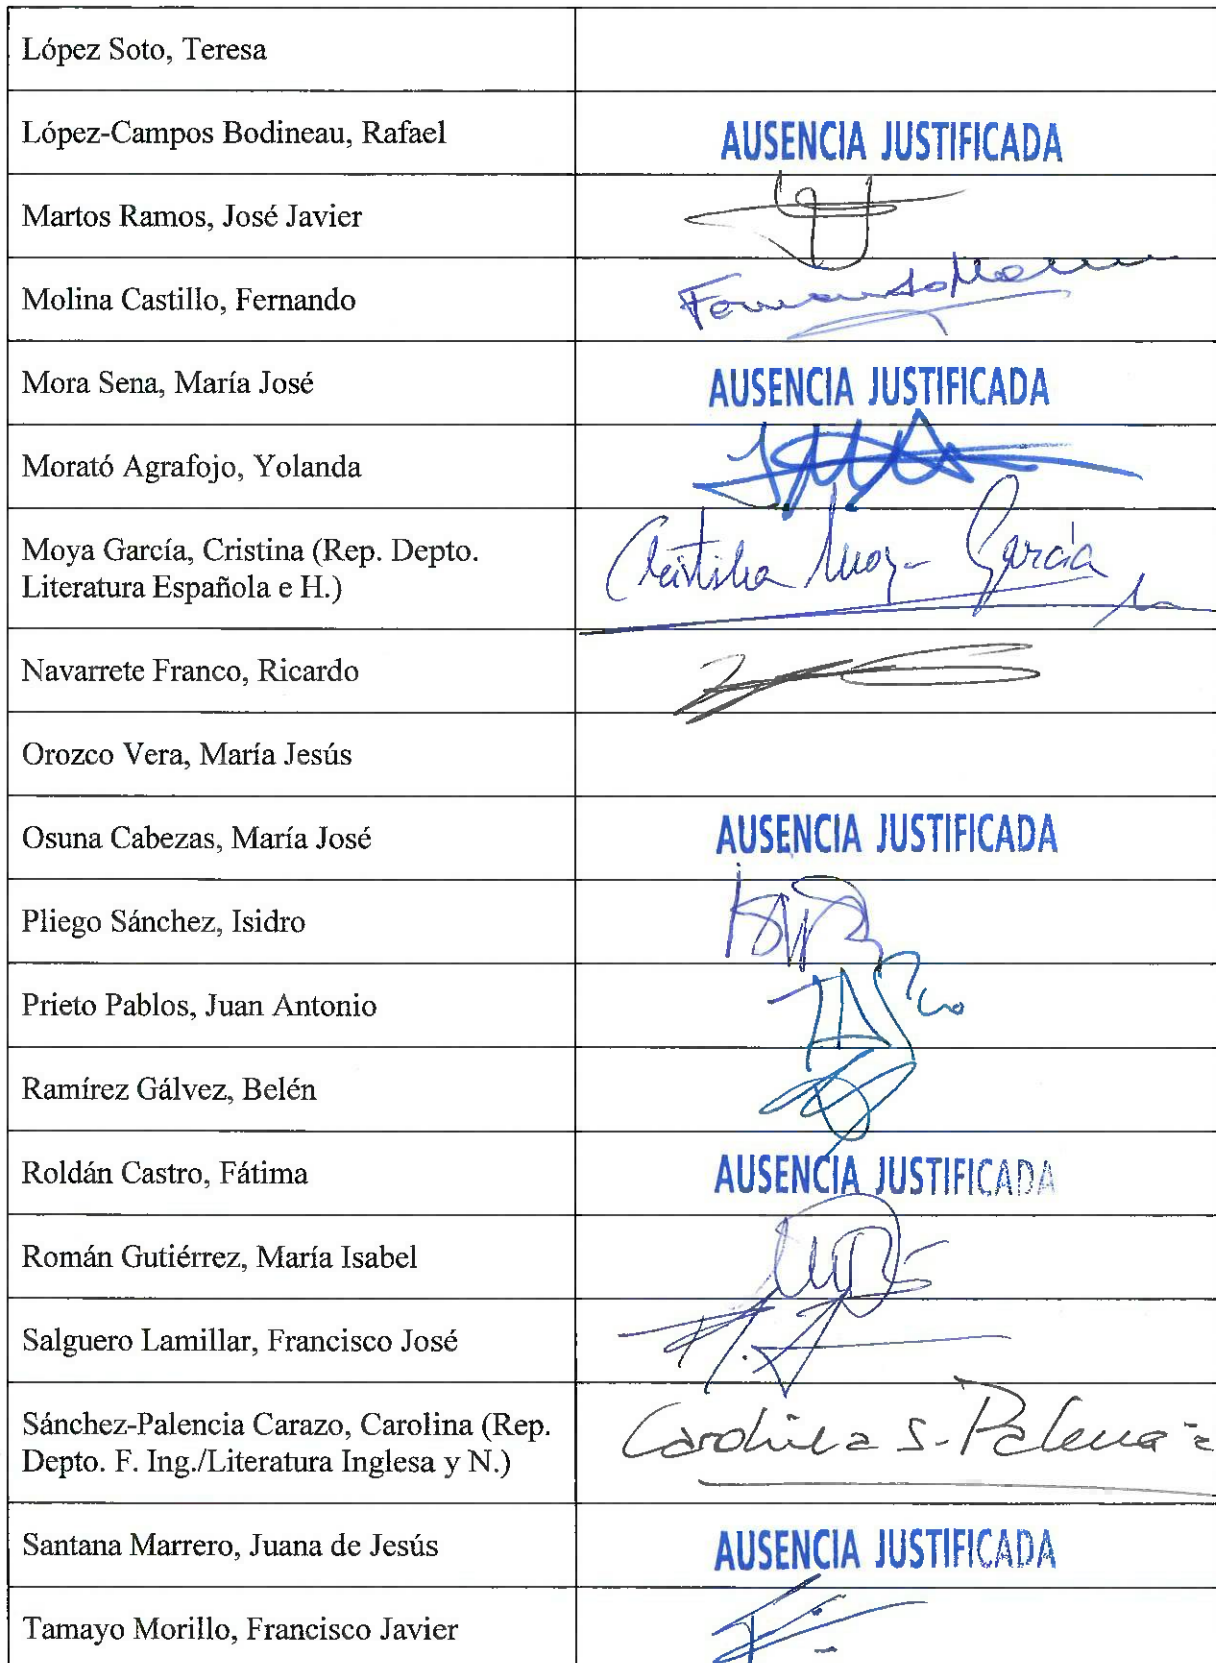 López Soto, Teresa
López-Campos Bodineau, Rafael
AUSENCIA JUSTIFICADA
Martos Ramos, José Javier
Molina Castillo, Fernando
Mora Sena, María José
AUSENCIA JUSTIFICADA
Morató Agrafojo, Yolanda
Moya García, Cristina (Rep. Depto.
Literatura Española e H.)
Cristina Moya García
Navarrete Franco, Ricardo
Orozco Vera, María Jesús
Osuna Cabezas, María José
AUSENCIA JUSTIFICADA
Pliego Sánchez, Isidro
Prieto Pablos, Juan Antonio
Ramírez Gálvez, Belén
Roldán Castro, Fátima
AUSENCIA JUSTIFICADA
Román Gutiérrez, María Isabel
Salguero Lamillar, Francisco José
Sánchez-Palencia Carazo, Carolina (Rep.
Depto. F. Ing./Literatura Inglesa y N.)
Carolina S-Palencia
Santana Marrero, Juana de Jesús
AUSENCIA JUSTIFICADA
Tamayo Morillo, Francisco Javier